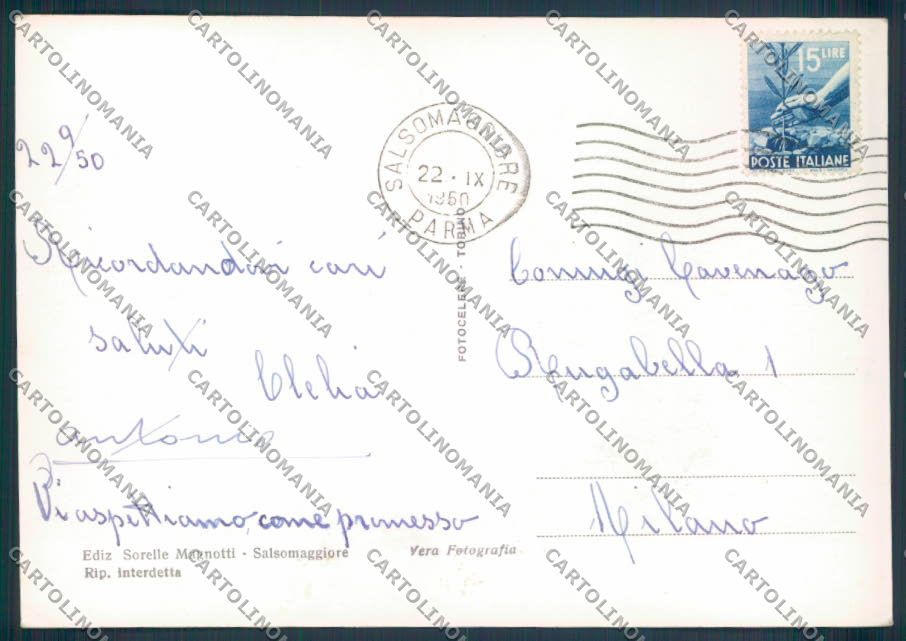 22 9/50
Ricordandovi cari
saluti
Clelia
Antonio
Vi aspettiamo, come promesso
Ediz Sorelle Magnotti - Salsomaggiore
Rip. interdetta
Vera Fotografia
FOTOCELERE - TORINO
SALSOMAGGIORE
22 · IX
1950
PARMA
15 LIRE
POSTE ITALIANE
Cavenago
Rugabella 1
Milano
CARTOLINOMANIA